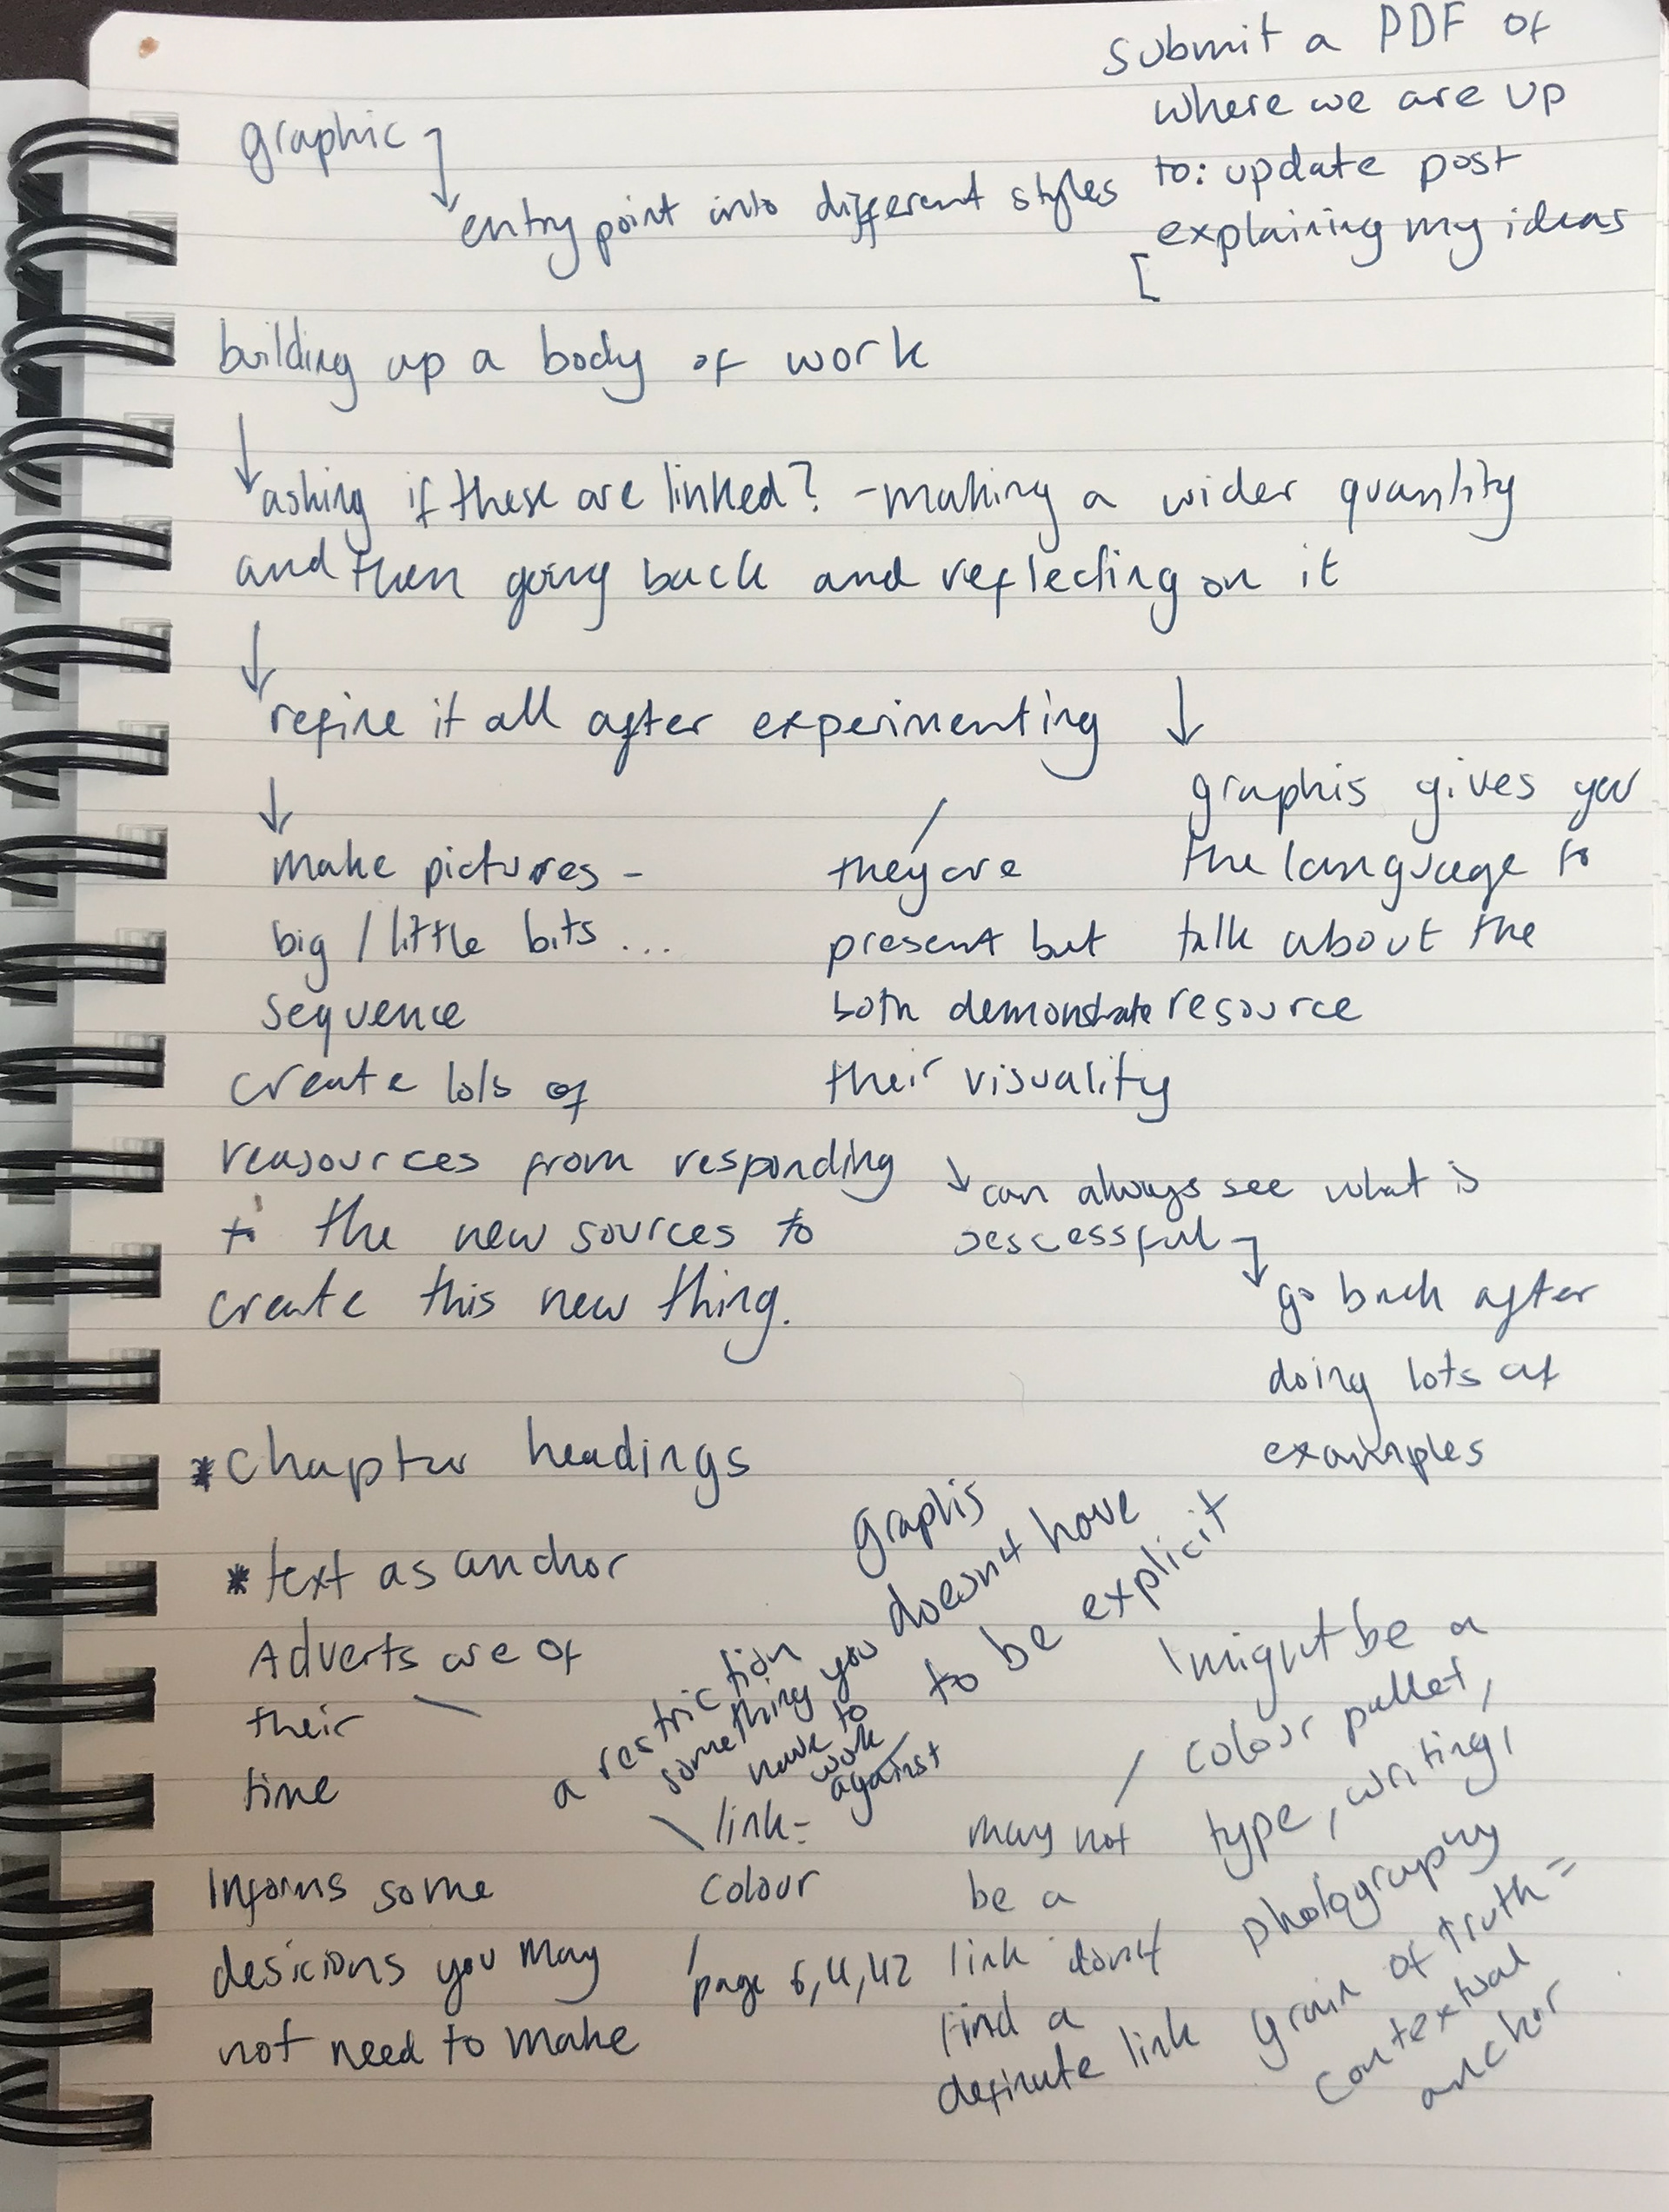 submit a PDF of
where we are up
to: update post
explaining my ideas
[
graphic
entry point into different styles
building up a body of work
asking if these are linked? - making a wider quantity
and then going back and reflecting on it
refine it all after experimenting
make pictures -
big / little bits ...
sequence
create lots of
reasources from responding
to the new sources to
create this new thing.
they are
present but
both demonstrate
their visuality
graphis gives you
the language to
talk about the
resource
can always see what is
sescessful
go back after
doing lots of
examples
*chapter headings
*text as anchor
Adverts are of
their
time
Informs some
desicions you may
not need to make
a restriction
something you
have to
work
against
link =
colour
page 6,
graphis
doesn't have
to be explicit
may not
be a
link don't
find a
definate link
might be a
colour pallet,
type, writing,
photography
grain of truth =
contextual
anchor